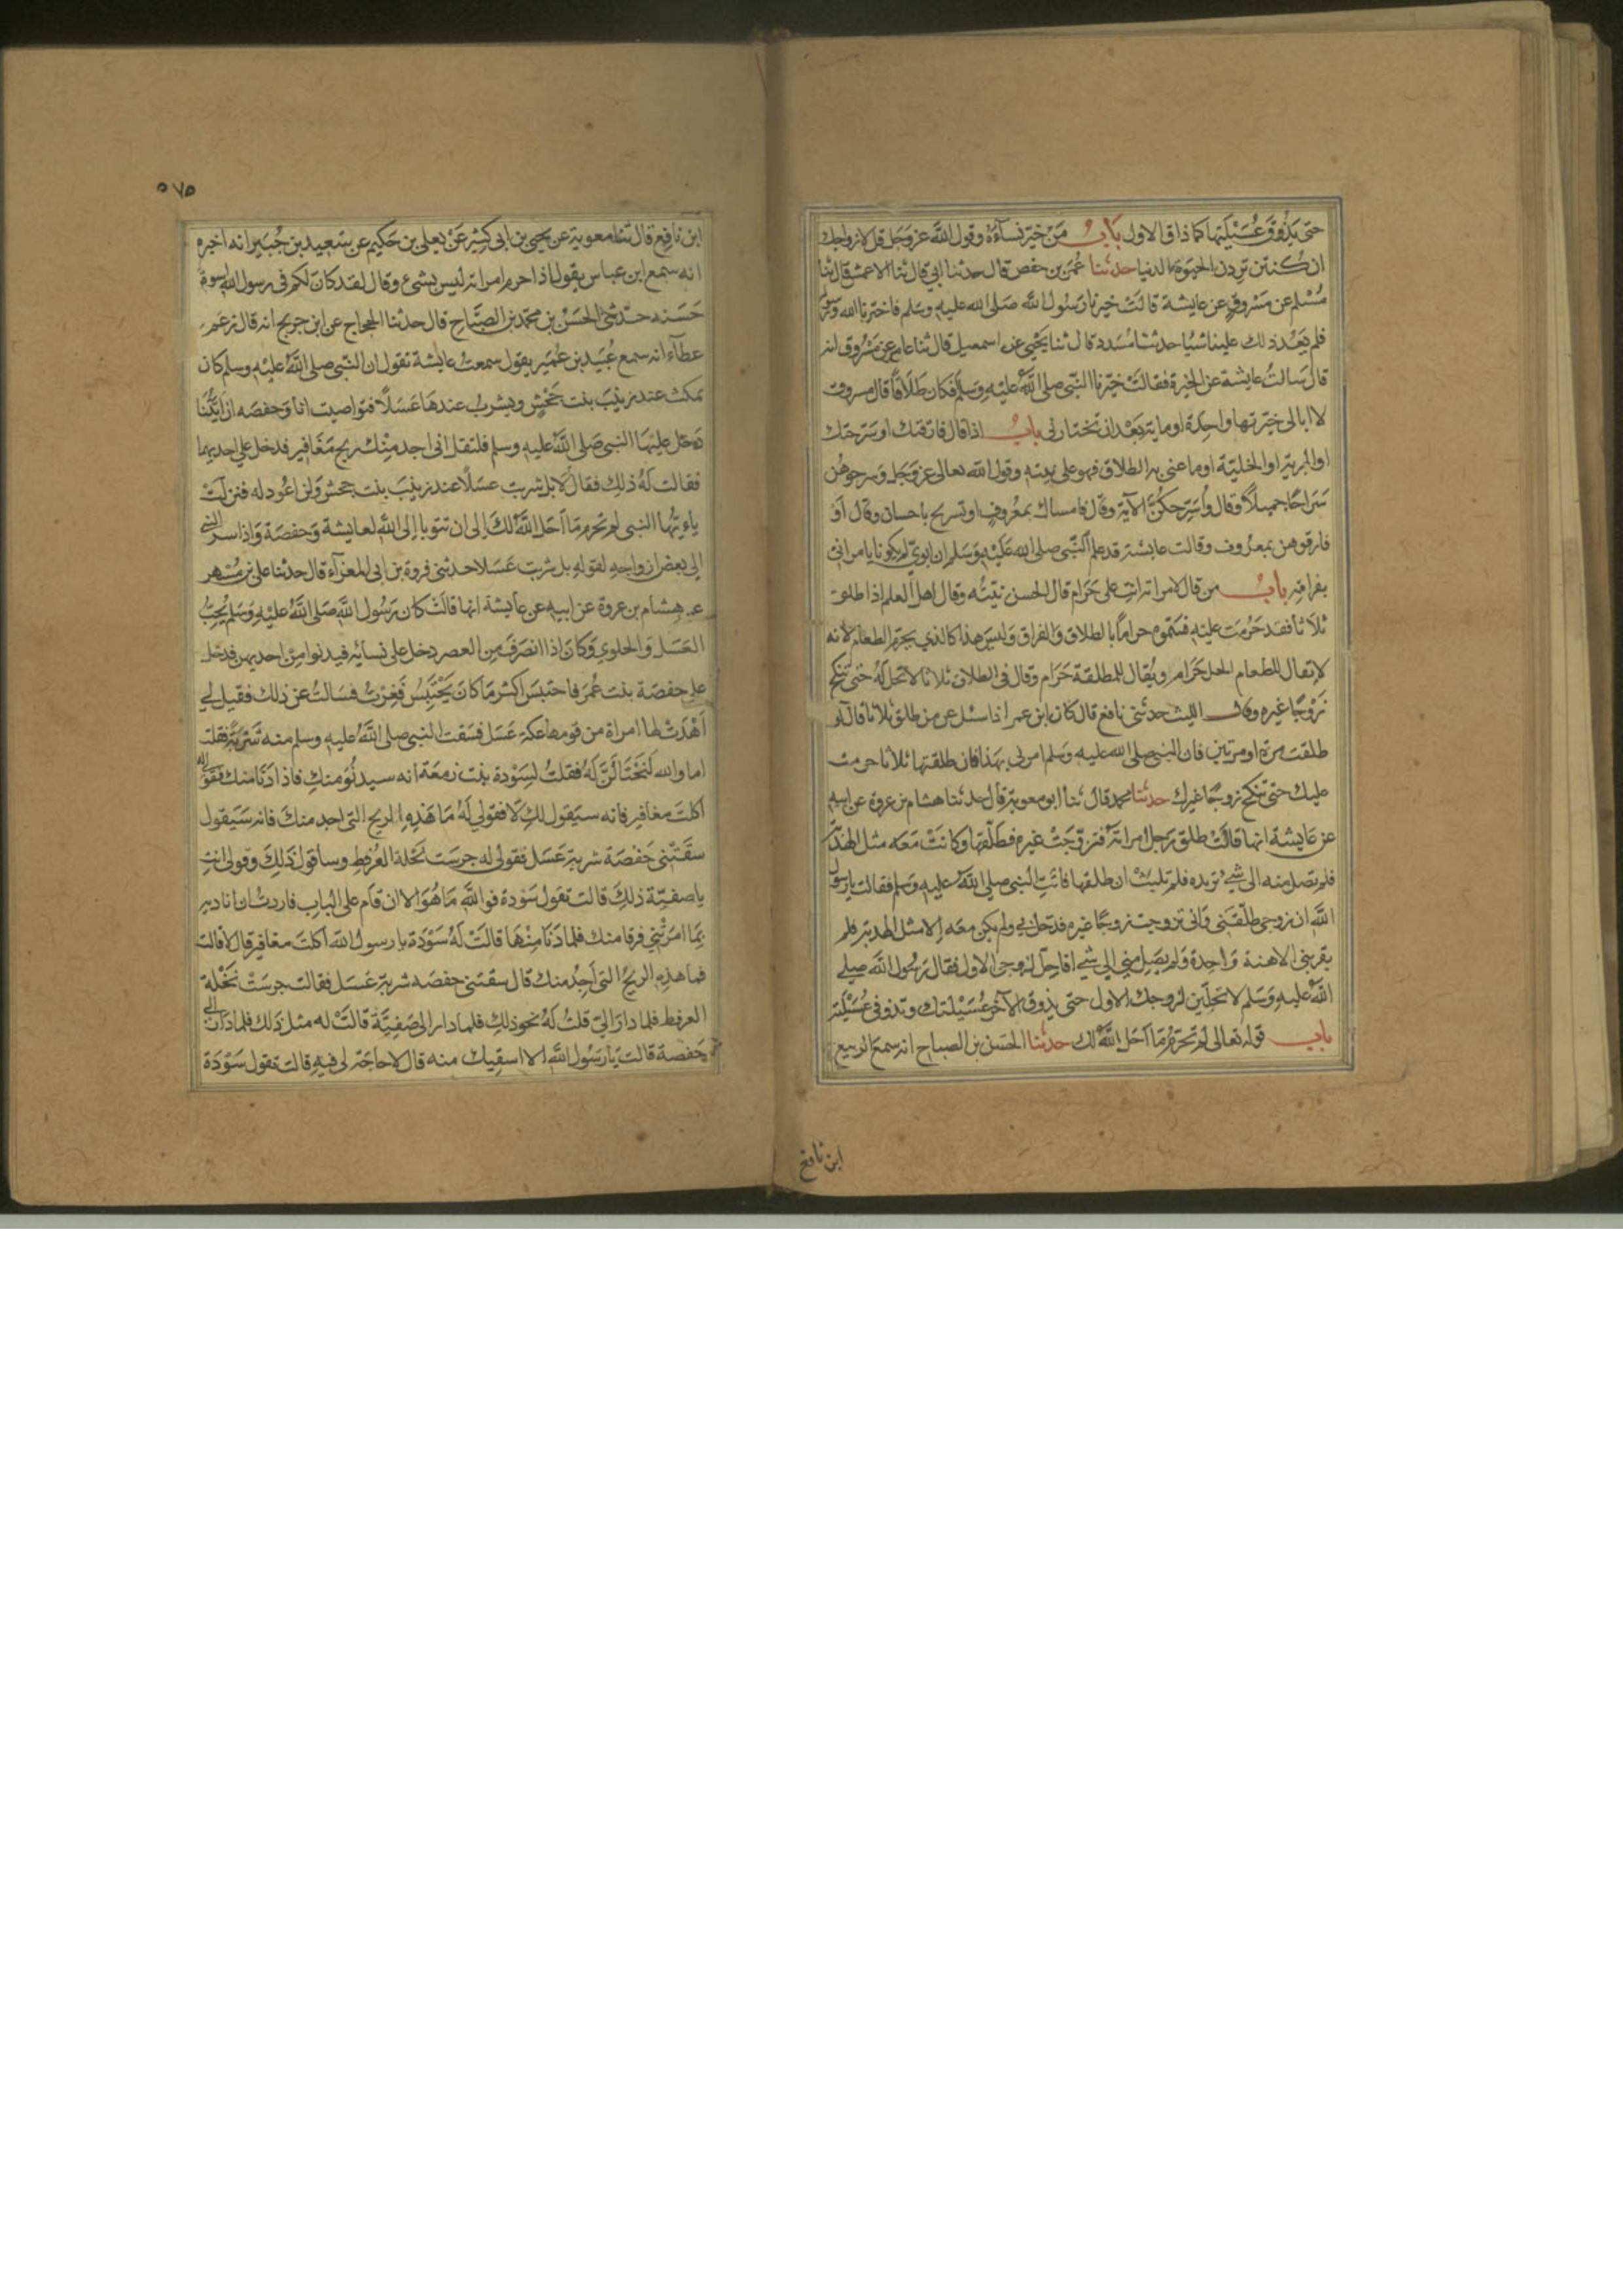 حتى يذوق عسيلتها كما ذاق الاول باب من خير نساءه وقول الله عز وجل قل لازواجك
ان كنتن تردن الحيوة الدنيا حدثنا عمر بن حفص قال حدثنا ابي قال ثنا الاعمش قال ثنا
مسلم عن مسروق عن عايشة قالت خيرنا رسول الله صلى الله عليه وسلم فاخترنا الله ورسوله
فلم يعد ذلك علينا شيا حدثنا مسدد قال ثنا يحيى عن اسمعيل قال ثنا عامر عن مسروق انه
قال سالت عايشة عن الخيرة فقالت خيرنا النبي صلى الله عليه وسلم فكان طلاقا قال مسروق
لا ابالى خيرتها واحدة او ماية بعد ان تختارنى باب اذا قال فارقتك او سرحتك
او البرية او الخلية او ما عنى به الطلاق فهو على نيته وقول الله تعالى عز وجل وسرحوهن
سراحا جميلا وقال واسرحكن الآية وقال فامساك بمعروف او تسريح باحسان وقال او
فارقوهن بمعروف وقالت عايشة قد علم النبى صلى الله عليه وسلم ان ابوى لم يكونا يامرانى
بفراقه باب من قال لامراته انت على حرام قال الحسن نيته وقال اهل العلم اذا طلق
ثلاثا فقد حرمت عليه فسموه حراما بالطلاق والفراق وليس هذا كالذي يحرم الطعام لانه
لا يقال للطعام الحل حرام ويقال للمطلقة حرام وقال فى الطلاق ثلاثا لا تحل له حتى تنكح
زوجا غيره وقال الليث حدثني نافع قال كان ابن عمر اذا سئل عن من طلق ثلاثا قال لو
طلقت مرة او مرتين فان النبى صلى الله عليه وسلم امرنى بهذا فان طلقتها ثلاثا حرمت
عليك حتى تنكح زوجا غيرك حدثنا محمد قال ثنا ابو معوية قال حدثنا هشام بن عروة عن ابيه
عن عايشة انها قالت طلق رجل امراته فتزوجت غيره فطلقها وكانت معه مثل الهدبة
فلم تصل منه الى شي تريده فلم تلبث ان طلقها فاتت النبى صلى الله عليه وسلم فقالت يا رسول
الله ان زوجى طلقنى وانى تزوجت زوجا غيره فدخل بي ولم يكن معه الا مثل الهدبة فلم
يقربنى الا هنة واحدة ولم يصل مني الى شي افاحل لزوجى الاول فقال رسول الله صلى
الله عليه وسلم لا تحلين لزوجك الاول حتى يذوق الآخر عسيلتك وتذوقى عسيلته
باب قوله تعالى لم تحرم ما احل الله لك حدثنا الحسن بن الصباح انه سمع الربيع
ابن نافع
٥٧٥
ابن نافع قال ثنا معوية عن يحيى بن ابى كثير عن يعلى بن حكيم عن سعيد بن جبير انه اخبره
انه سمع ابن عباس يقول اذا حرم امراته ليس بشيء وقال لقد كان لكم فى رسول الله اسوة
حسنه حدثنى الحسن بن محمد بن الصباح قال حدثنا الحجاج عن ابن جريج انه قال زعم
عطاء انه سمع عبيد بن عمير يقول سمعت عايشة تقول ان النبى صلى الله عليه وسلم كان
يمكث عند زينب بنت جحش ويشرب عندها عسلا فتواصيت انا وحفصه ان ايتنا
دخل عليها النبى صلى الله عليه وسلم فلتقل انى اجد منك ريح مغافير فدخل على احديهما
فقالت له ذلك فقال لا بل شربت عسلا عند زينب بنت جحش ولن اعود له فنزلت
ياءيها النبى لم تحرم ما احل الله لك الى ان تتوبا الى الله لعايشة وحفصة واذ اسر النبي
الى بعض ازواجه لقوله بل شربت عسلا حدثنى فروة بن ابى المغراء قال حدثنا على بن مسهر
عن هشام بن عروة عن ابيه عن عايشة انها قالت كان رسول الله صلى الله عليه وسلم يحب
العسل والحلوي وكان اذا انصرف من العصر دخل على نسائه فيدنوا من احديهن فدخل
على حفصة بنت عمر فاحتبس اكثر ما كان يحتبس فغرت فسالت عن ذلك فقيل لي
اهدت لها امراة من قومها عكة عسل فسقت النبى صلى الله عليه وسلم منه شربة فقلت
اما والله لنحتالن له فقلت لسودة بنت زمعة انه سيدنو منك فاذا دنا منك فقولى له
اكلت مغافير فانه سيقول لك لا فقولي له ما هذه الريح التى اجد منك فانه سيقول
سقتنى حفصة شربة عسل فقولى له جرست نحلة العرفط وساقول ذلك وقولى انت
يا صفية ذلك قالت تقول سودة فوالله ما هو الا ان قام على الباب فاردت ان اناديه
بما امرتني فرقا منك فلما دنا منها قالت له سودة يا رسول الله اكلت مغافير قال لا قالت
فما هذه الريح التى اجد منك قال سقتنى حفصه شربة عسل فقالت جرست نحلة
العرفط فلما دار الي قلت له نحو ذلك فلما دار الى صفية قالت له مثل ذلك فلما دار الى
حفصة قالت يا رسول الله الا اسقيك منه قال لا حاجة لى فيه قالت تقول سودة